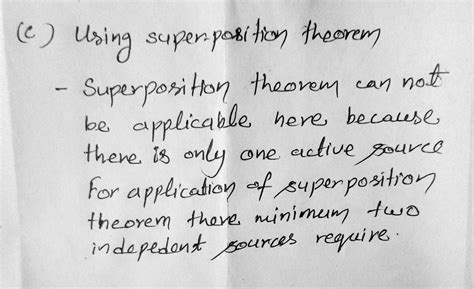 (c) Using superposition theorem
- Superposition theorem can not
be applicable here because
there is only one active source
For application of superposition
theorem there minimum two
indepedent sources require.